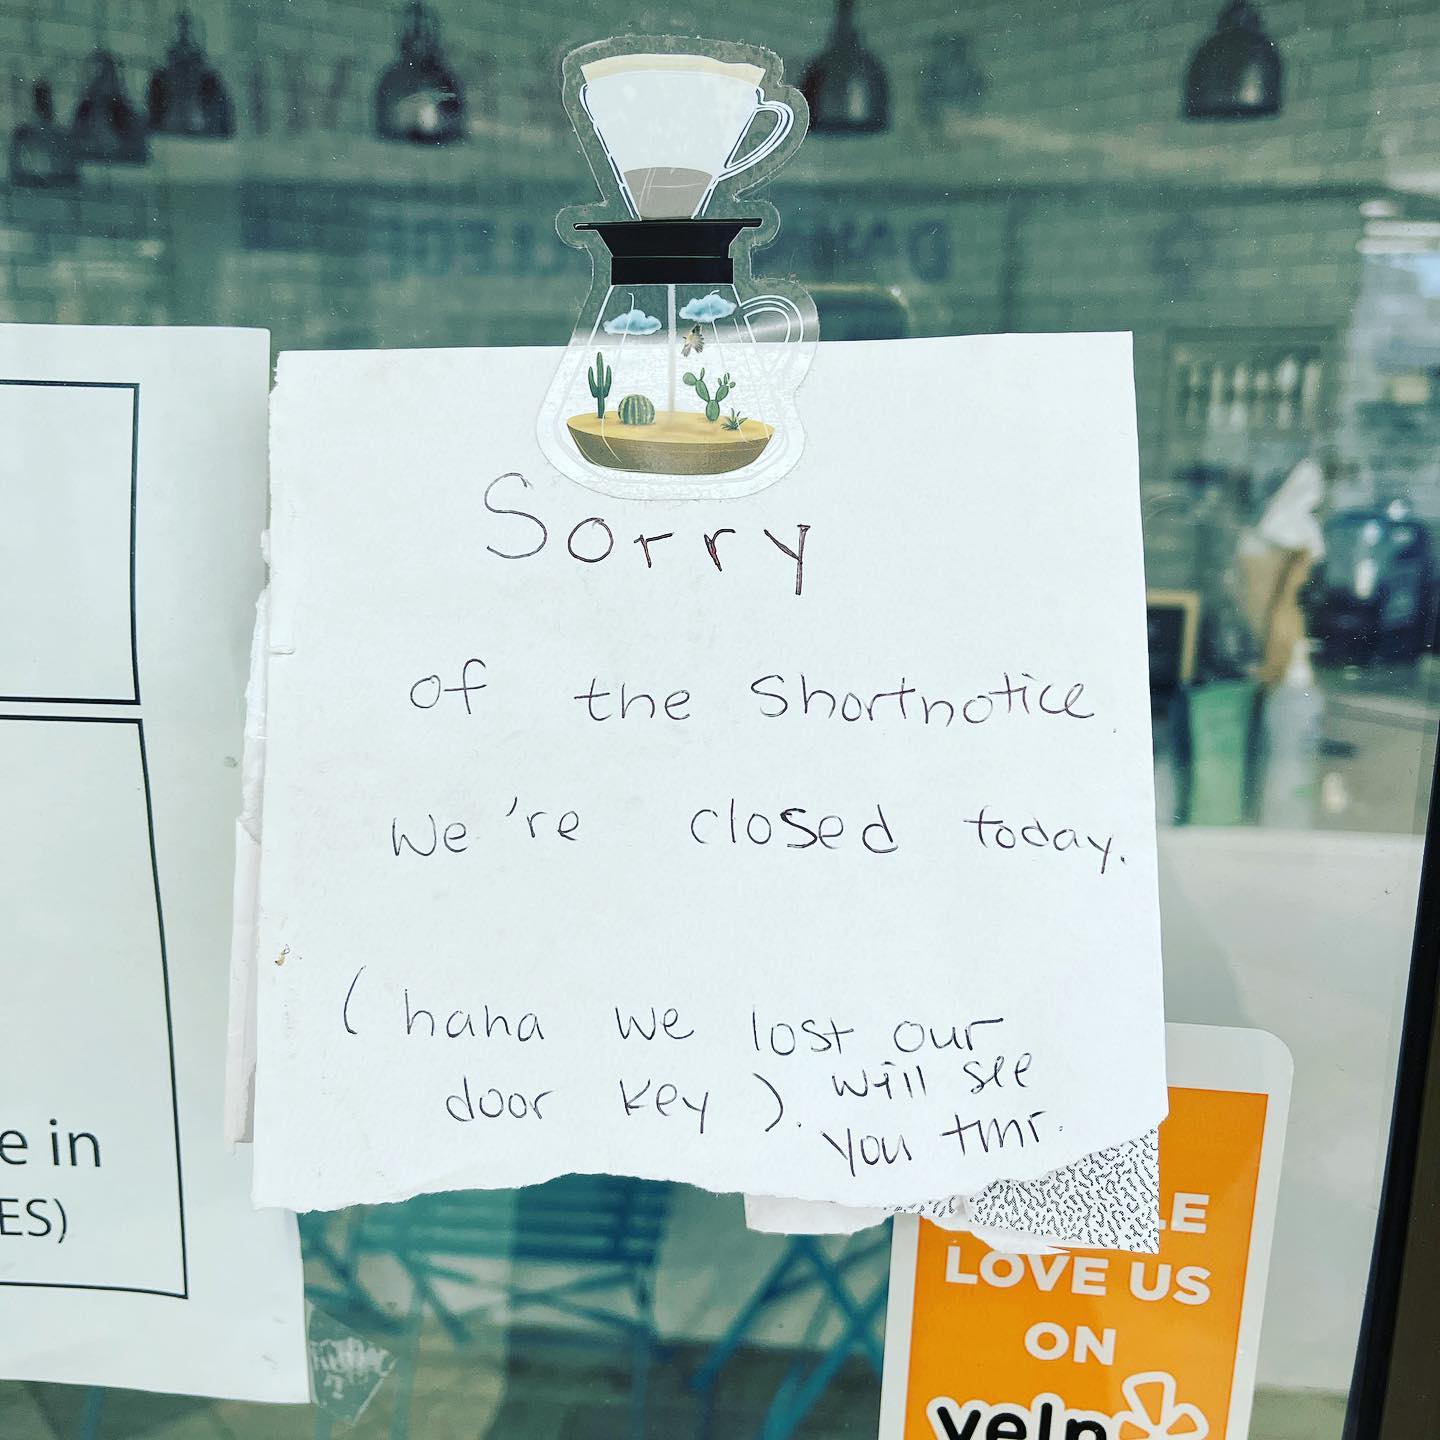 Sorry
of the Shortnotice
We're closed today.
(haha we lost our
door key). will see
you tmr.
e in
ES)
LE
LOVE US
ON
yelp